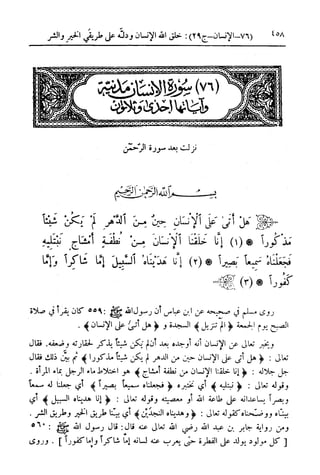 ٤٥٨ (٧٦- الإنسان - ج٢٩): خلق الله الإنسان ودلّه على طريقَي الخير والشر
(٧٦) سورة الإنسان مدنية
وآياتها إحدى وثلاثون
نزلت بعد سورة الرحمن
بسم الله الرحمن الرحيم
هَلْ أَتَى عَلَى الْإِنسَانِ حِينٌ مِنَ الدَّهْرِ لَمْ يَكُنْ شَيْئاً
مَذْكُوراً (١) إِنَّا خَلَقْنَا الْإِنسَانَ مِنْ نُطْفَةٍ أَمْشَاجٍ نَبْتَلِيهِ
فَجَعَلْنَاهُ سَمِيعاً بَصِيراً (٢) إِنَّا هَدَيْنَاهُ السَّبِيلَ إِمَّا شَاكِراً وَإِمَّا
كَفُوراً (٣)
روى مسلم في صحيحه عن ابن عباس أن رسول الله ﷺ: ٥٥٩ كان يقرأ في صلاة
الصبح يوم الجمعة ﴿ الم تنزيل ﴾ السجدة و ﴿ هل أتى على الإنسان ﴾.
ويخبر تعالى عن الإنسان أنه أوجده بعد أن لم يكن شيئاً يذكر لحقارته وضعفه. فقال
تعالى: ﴿ هل أتى على الإنسان حين من الدهر لم يكن شيئاً مذكورا ﴾ ثم بيَّن ذلك فقال
جل جلاله: ﴿ إنا خلقنا الإنسان من نطفة أمشاج ﴾ هو اختلاط ماء الرجل بماء المرأة.
وقوله تعالى: ﴿ نبتليه ﴾ أي نختبره ﴿ فجعلناه سميعاً بصيراً ﴾ أي جعلنا له سمعاً
وبصراً يساعدانه على طاعة الله أو معصيته وقوله تعالى: ﴿ إنا هديناه السبيل ﴾ أي
بيناه ووضحناه كقوله تعالى: ﴿ وهديناه النجدَين ﴾ أي بيّنا طريق الخير وطريق الشر.
ومن رواية جابر بن عبد الله رضي الله تعالى عنه قال: قال رسول الله ﷺ: ٥٦٠
[ كل مولود يولد على الفطرة حتى يعرب عنه لسانه إما شاكراً وإما كفوراً ]. وروى